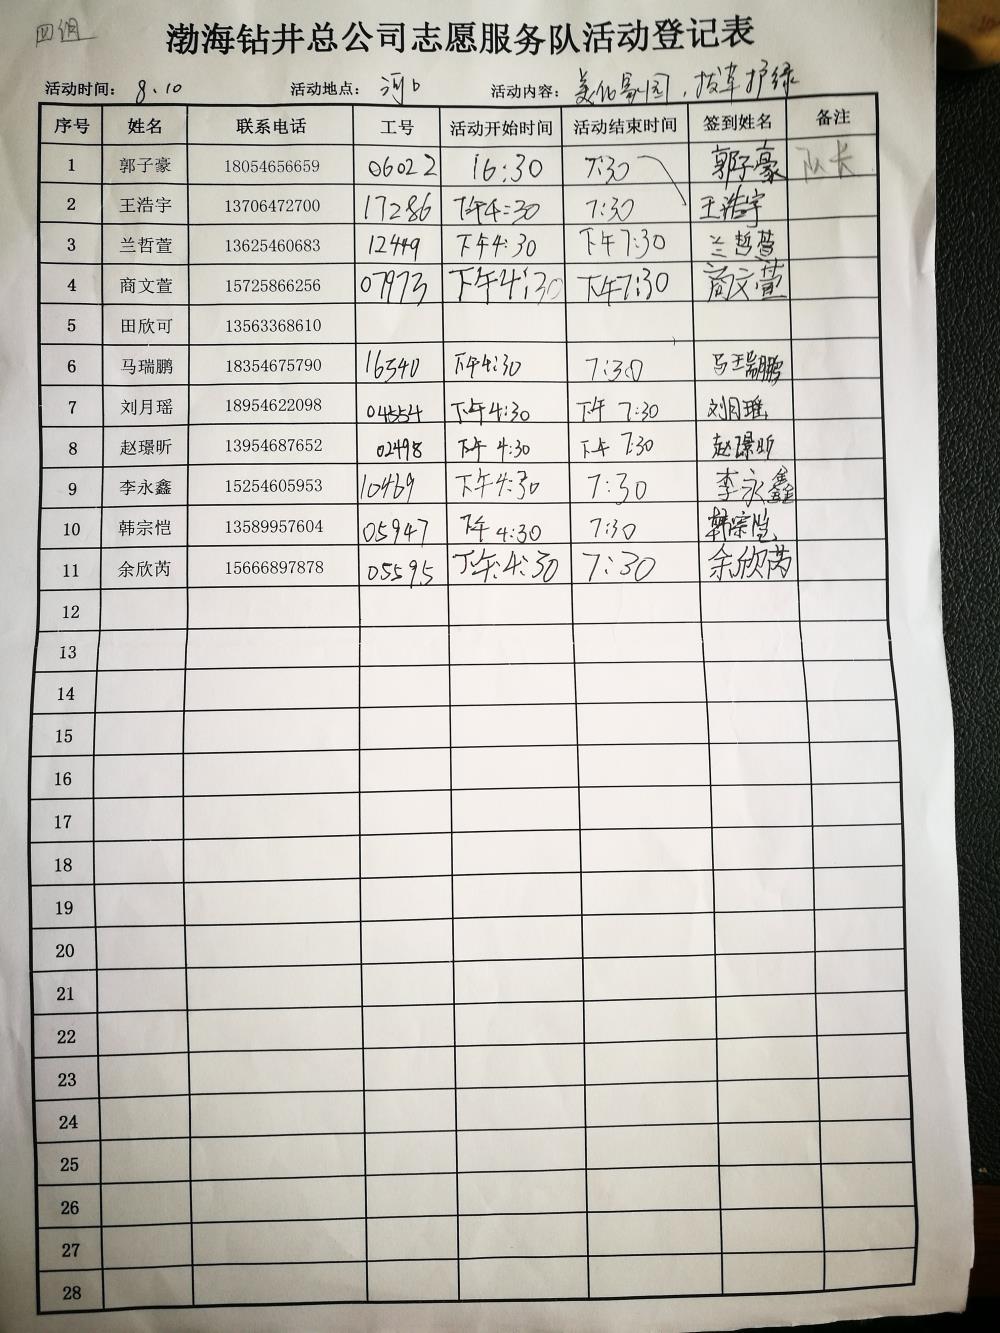 四组
渤海钻井总公司志愿服务队活动登记表
活动时间： 8.10 活动地点： 河口 活动内容： 美化家园，拔草护绿
序号 姓名 联系电话 工号 活动开始时间 活动结束时间 签到姓名 备注
1 郭子豪 18054656659 06022 16:30 7:30 郭子豪 队长
2 王浩宇 13706472700 17286 下午4:30 7:30 王浩宇
3 兰哲萱 13625460683 12449 下午4:30 下午7:30 兰哲萱
4 商文萱 15725866256 07973 下午4:30 下午7:30 商文萱
5 田欣可 13563368610
6 马瑞鹏 18354675790 16540 下午4:30 7:30 马瑞鹏
7 刘月瑶 18954622098 04554 下午4:30 下午 7:30 刘月瑶
8 赵璟昕 13954687652 02498 下午 4:30 下午 7:30 赵璟昕
9 李永鑫 15254605953 10469 下午4:30 7:30 李永鑫
10 韩宗恺 13589957604 05947 下午 4:30 7:30 韩宗恺
11 余欣芮 15666897878 05595 下午4:30 7:30 余欣芮
12
13
14
15
16
17
18
19
20
21
22
23
24
25
26
27
28